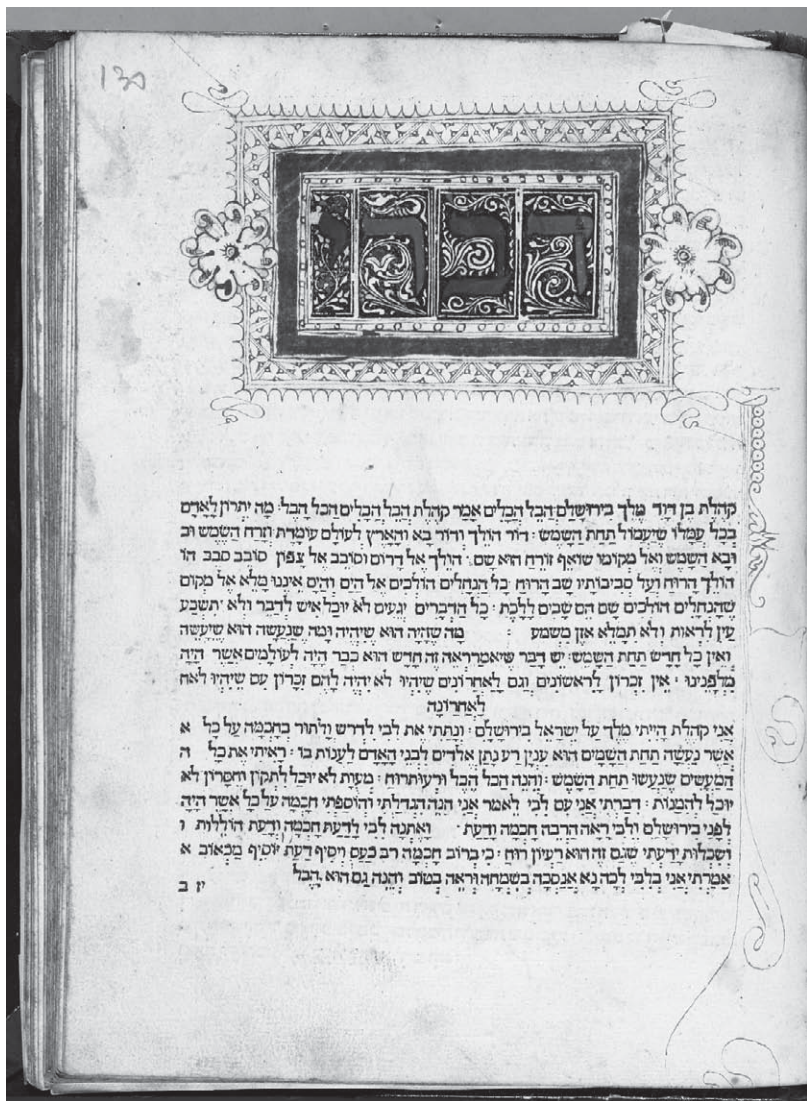 130
דברי
קהלת בן דוד מלך בירושלם הבל הבלים אמר קהלת הבל הבלים הכל הבל׃ מה יתרון לאדם
בכל עמלו שיעמול תחת השמש׃ דור הולך ודור בא והארץ לעולם עומדת וזרח השמש וב
ובא השמש ואל מקומו שואף זורח הוא שם׃ הולך אל דרום וסובב אל צפון סובב סבב הו
הולך הרוח ועל סביבותיו שב הרוח׃ כל הנחלים הולכים אל הים והים איננו מלא אל מקום
שהנחלים הולכים שם הם שבים ללכת׃ כל הדברים יגעים לא יוכל איש לדבר ולא תשבע
עין לראות ולא תמלא אזן משמע׃ מה שהיה הוא שיהיה ומה שנעשה הוא שיעשה
ואין כל חדש תחת השמש׃ יש דבר שיאמר ראה זה חדש הוא כבר היה לעולמים אשר היה
מלפנינו׃ אין זכרון לראשונים וגם לאחרונים שיהיו לא יהיה להם זכרון עם שיהיו לאח
לאחרונה
אני קהלת הייתי מלך על ישראל בירושלם׃ ונתתי את לבי לדרש ולתור בחכמה על כל א
אשר נעשה תחת השמים הוא ענין רע נתן אלדים לבני האדם לענות בו׃ ראיתי את כל ה
המעשים שנעשו תחת השמש׃ והנה הכל הבל ורעות רוח׃ מעות לא יוכל לתקון וחסרון לא
יוכל להמנות׃ דברתי אני עם לבי לאמר אני הנה הגדלתי והוספתי חכמה על כל אשר היה
לפני בירושלם ולבי ראה הרבה חכמה ודעת׃ ואתנה לבי לדעת חכמה ודעת הוללות ו
ושכלות ידעתי שגם זה הוא רעיון רוח׃ כי ברוב חכמה רב כעס ויסיף דעת יוסיף מכאוב א
אמרתי אני בלבי לכה נא אנסכה בשמחה וראה בטוב והנה גם הוא הבל
יז ב